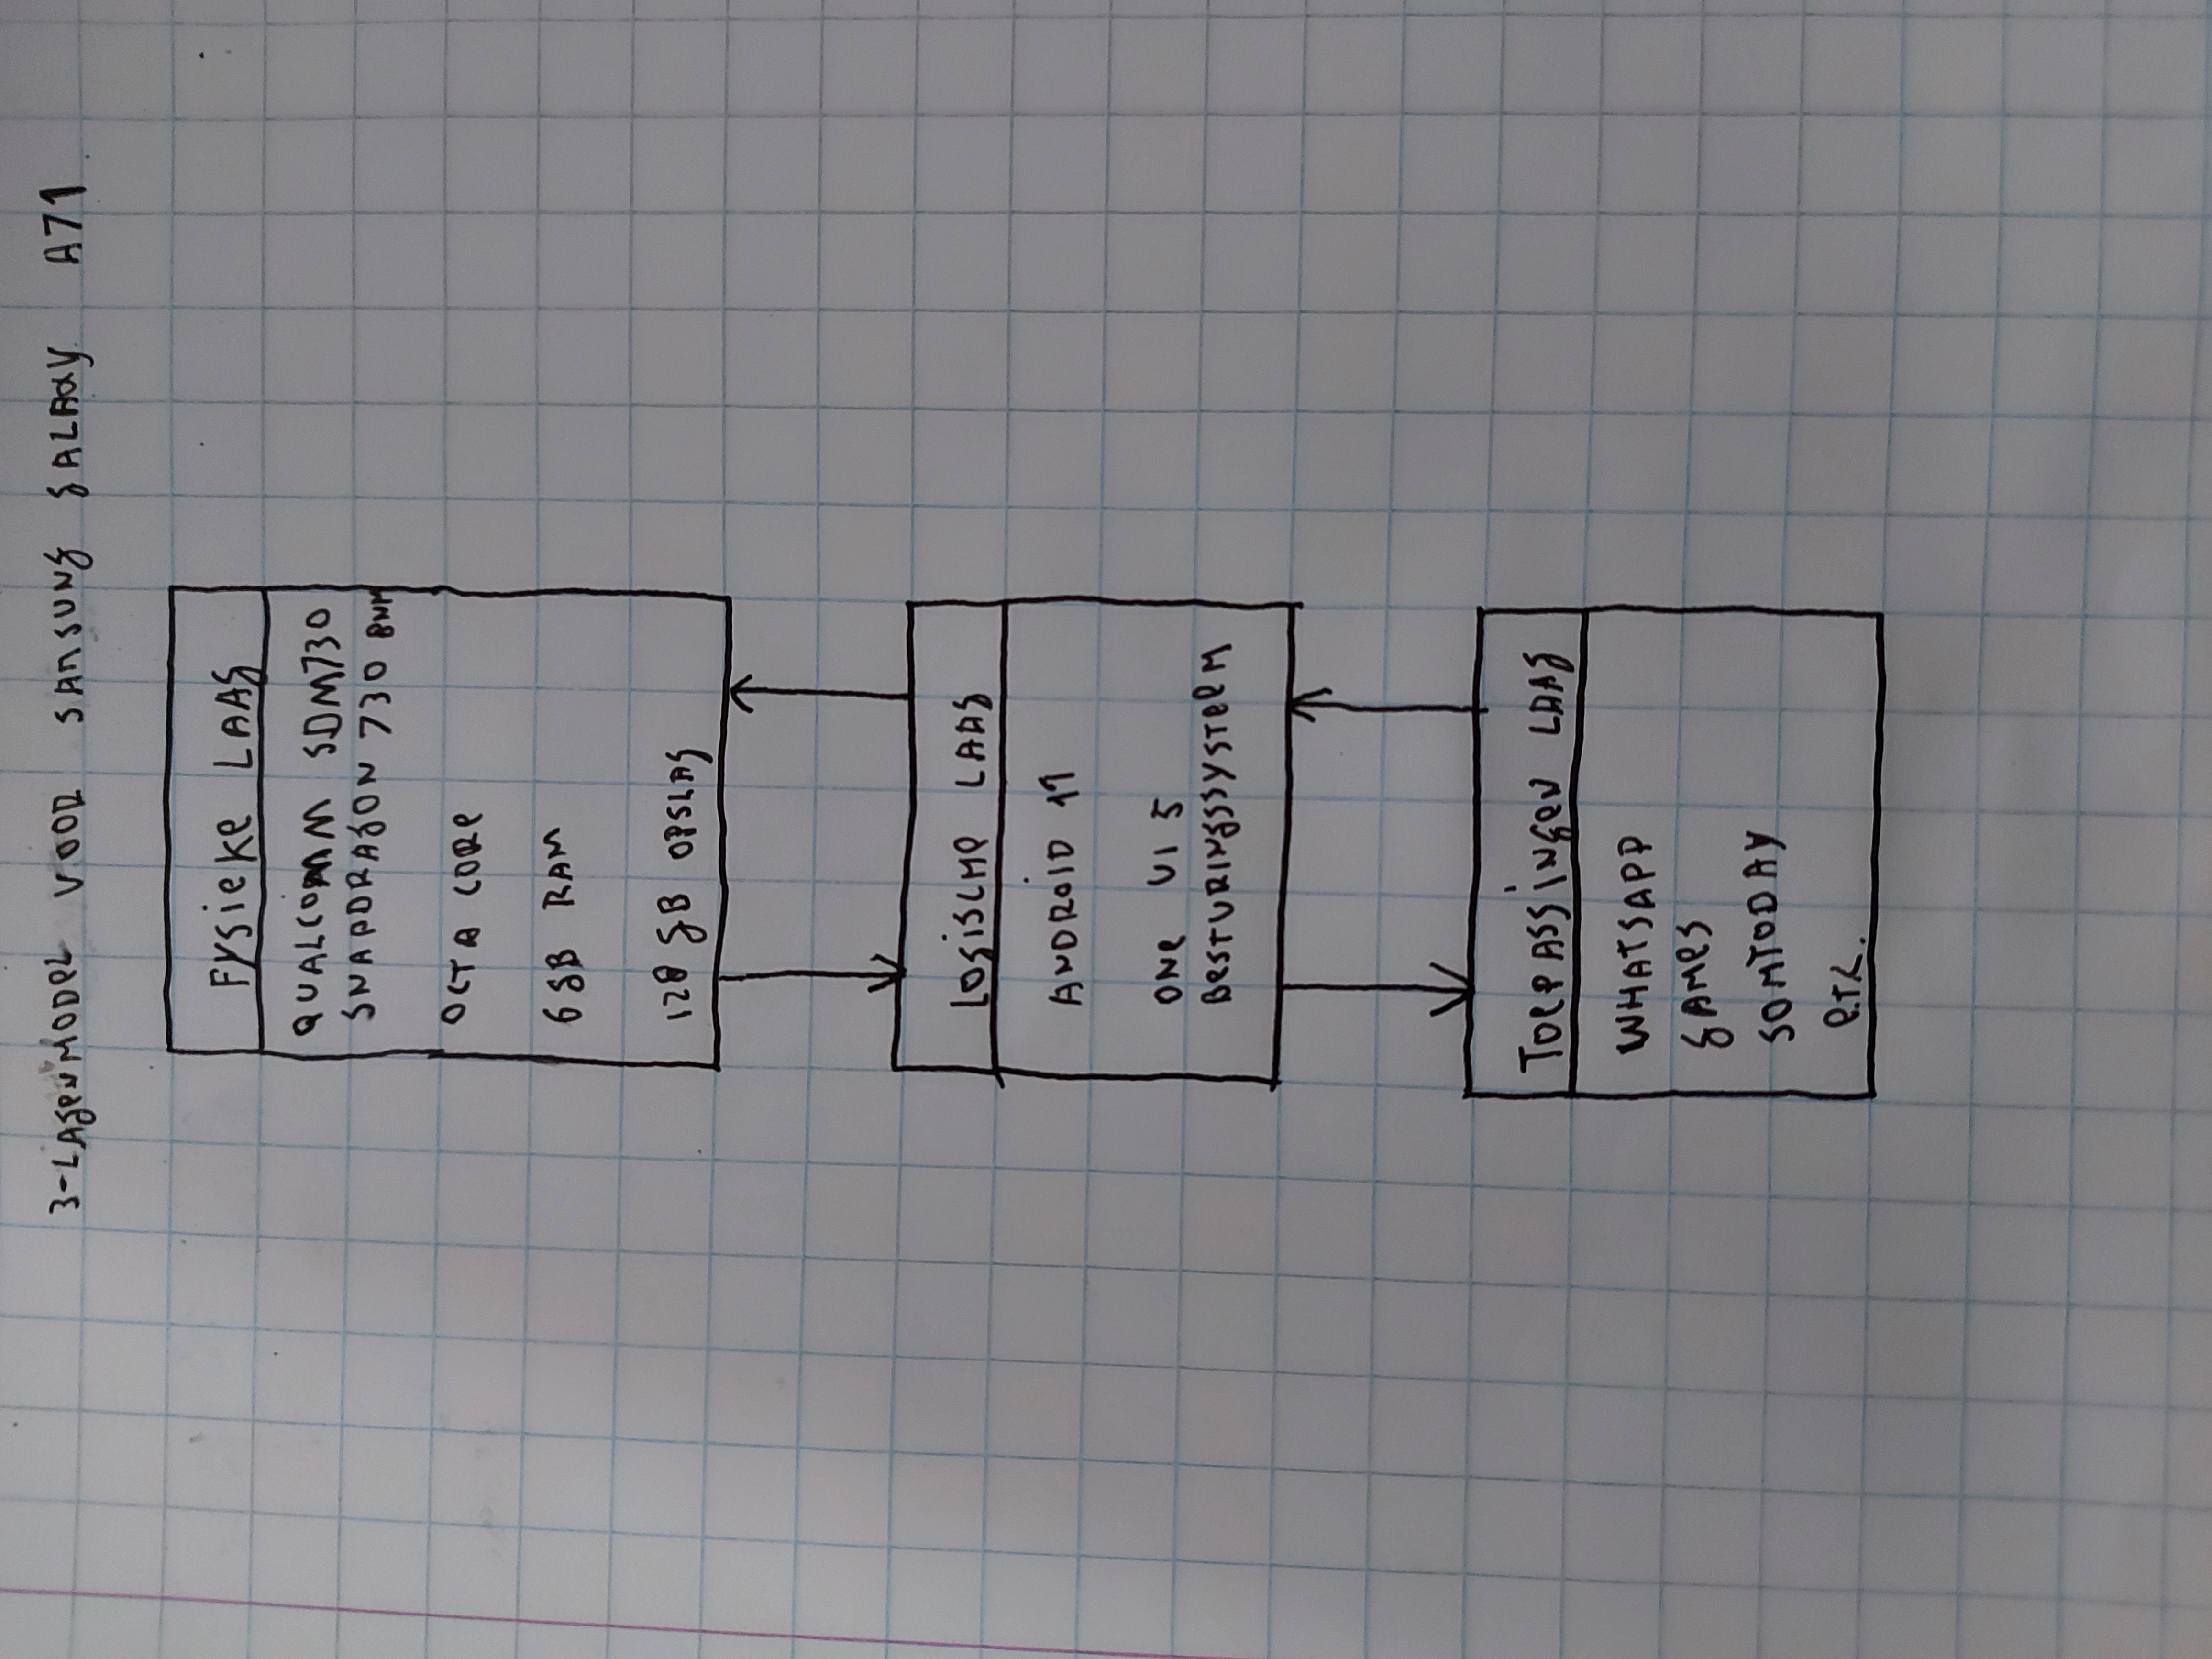 3-LAGENMODEL VOOR SAMSUNG GALAXY A71
FYSIEKE LAAG
QUALCOMM SDM730
SNAPDRAGON 730 8NM
OCTA CORE
6 GB RAM
128 GB OPSLAG
LOGISCHE LAAG
ANDROID 11
ONE UI 5
BESTURINGSSYSTEEM
TOEPASSINGEN LAAG
WHATSAPP
GAMES
SOMTODAY
E.T.C.